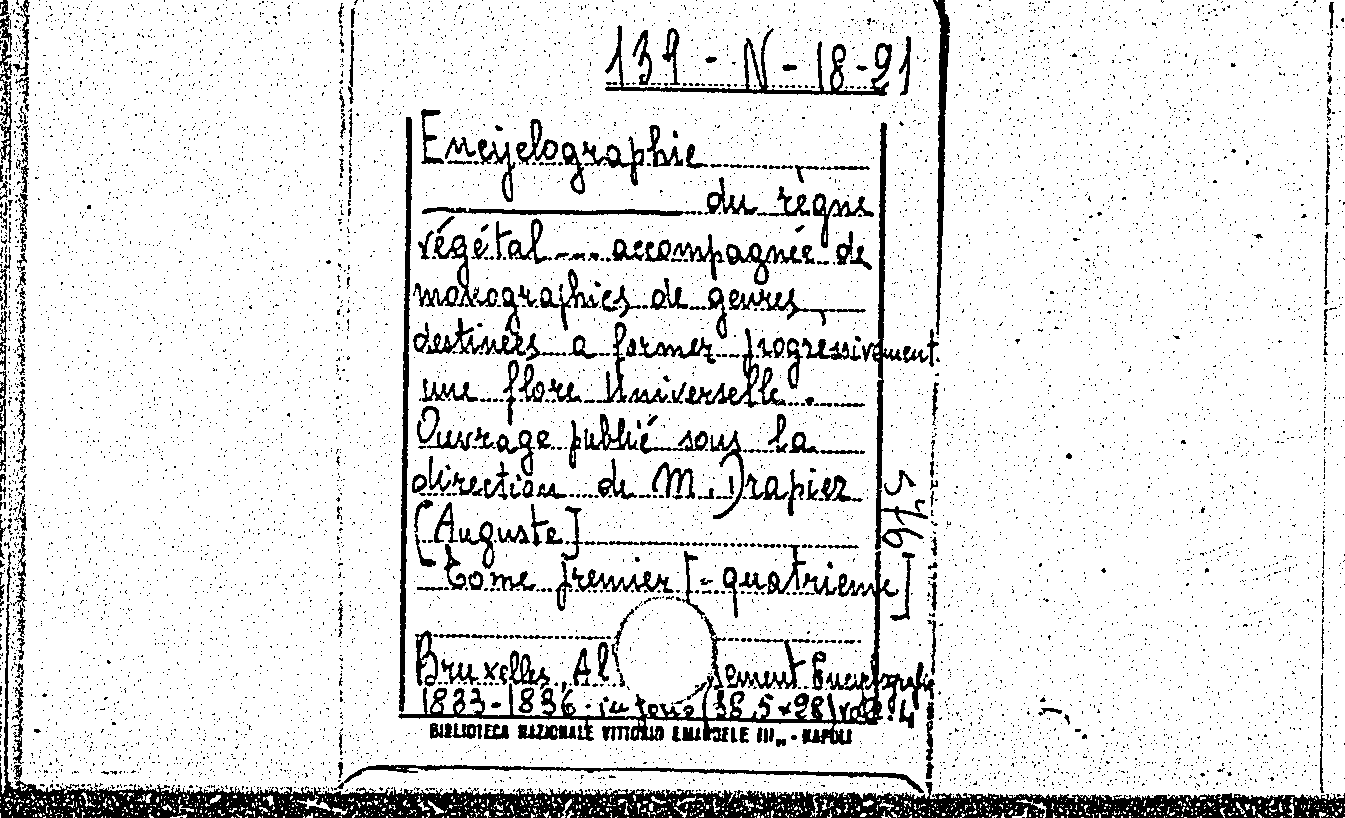 139 - N - 18-21
Encyclographie
du règne
végétal --- accompagnée de
monographies de genres,
destinées a former progressivement
une flore Universelle.
Ouvrage publié sous la
direction de M. Drapiez
[Auguste]
Tome premier [- quatrieme]
Bruxelles, 
1833-1836. in folio (38,5×28) vol. 4
BIBLIOTECA NAZIONALE VITTORIO EMANUELE III,, - NAPOLI